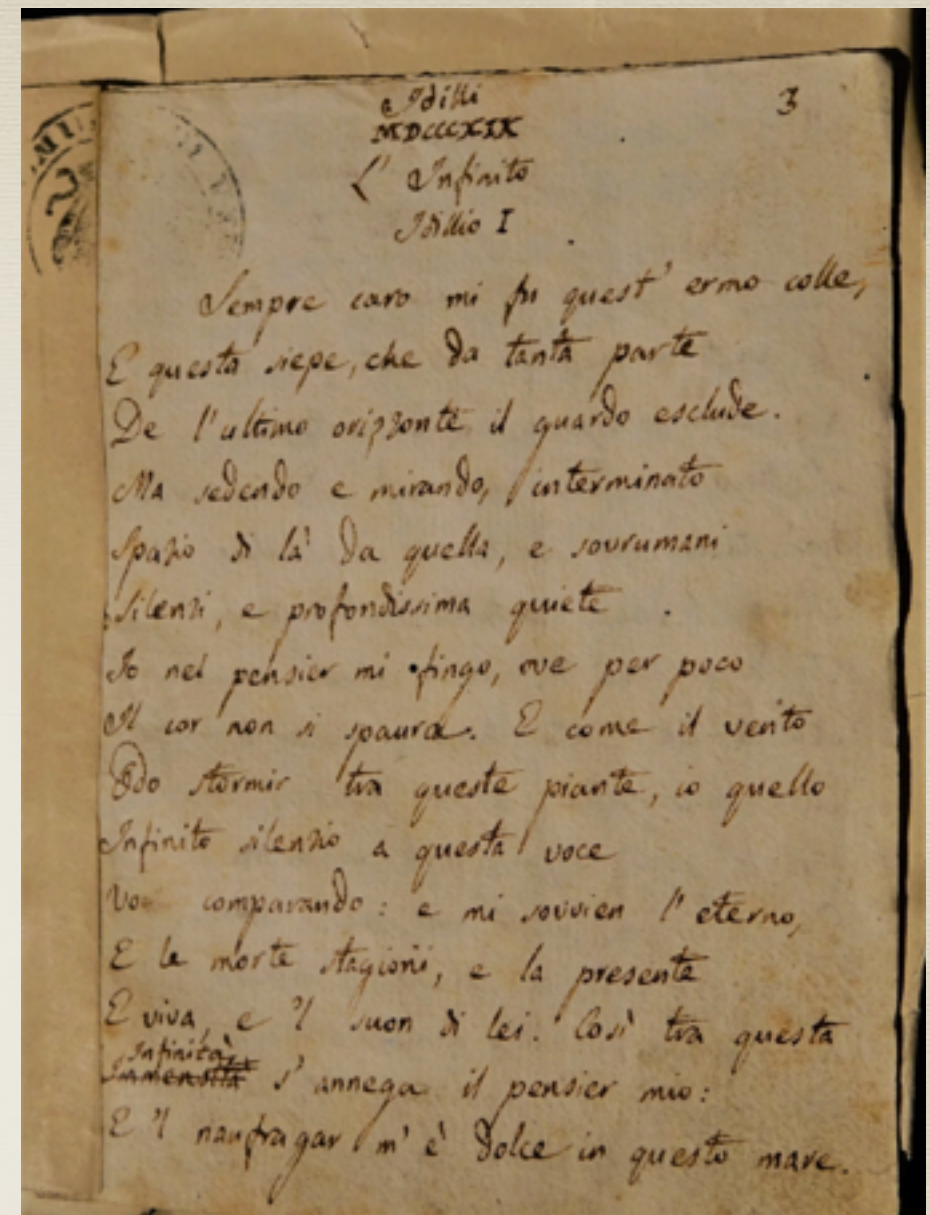 Idilli
3
MDCCCXIX
L' Infinito
Idillio I
Sempre caro mi fu quest' ermo colle,
E questa siepe, che da tanta parte
De l'ultimo orizzonte il guardo esclude.
Ma sedendo e mirando, interminato
Spazio di là da quella, e sovrumani
Silenzi, e profondissima quiete
Io nel pensier mi fingo, ove per poco
Il cor non si spaura. E come il vento
Odo stormir tra queste piante, io quello
Infinito silenzio a questa voce
Vo comparando: e mi sovvien l' eterno,
E le morte stagioni, e la presente
E viva, e 'l suon di lei. Così tra questa
Infinità
Immensità s' annega il pensier mio:
E 'l naufragar m' è dolce in questo mare.